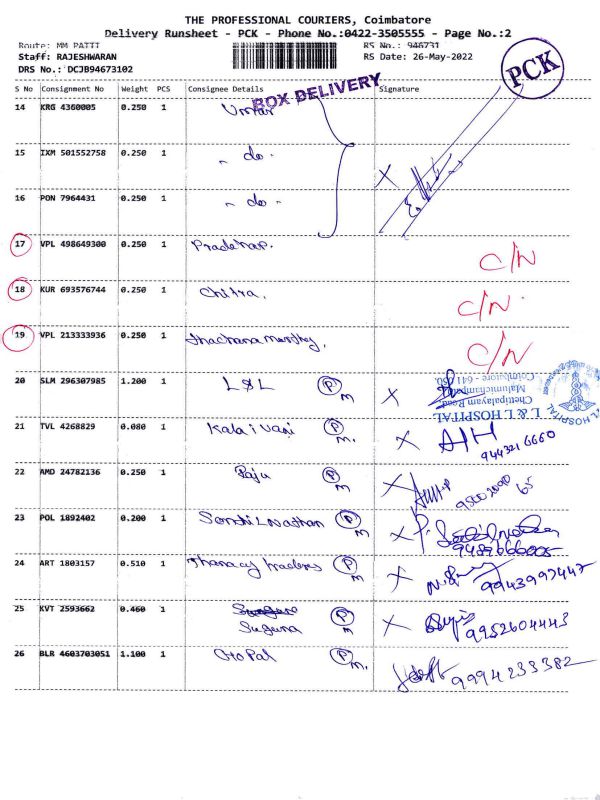 THE PROFESSIONAL COURIERS, Coimbatore
Delivery Runsheet - PCK - Phone No.:0422-3505555 - Page No.:2
Route: MM PATTI RS No.: 946731
Staff: RAJESHWARAN RS Date: 26-May-2022
DRS No.: DCJB94673102
PCK
BOX DELIVERY
S No Consignment No Weight PCS Consignee Details Signature
14 KRG 4360005 0.250 1 Umar
15 IXM 501552758 0.250 1 - do -
16 PON 7964431 0.250 1 - do -
17 VPL 498649300 0.250 1 Pradeep. C/N
18 KUR 693576744 0.250 1 Chitra. C/N
19 VPL 213333936 0.250 1 C/N
20 SLM 296307985 1.200 1 L&L P M X
L & L HOSPITAL
Chettipalayam Road,
Malumichampatti
Coimbatore - 641 050.
L & L HOSPITAL
21 TVL 4268829 0.080 1 Kalaivani P M. X 944321 6660
22 AMD 24782136 0.250 1 Raju P M X
23 POL 1892402 0.200 1 P M X
24 ART 1803157 0.510 1 traders P M X 9943997447
25 KVT 2593662 0.460 1 Suguna P M X 9952604443
26 BLR 4603703051 1.100 1 P M. 9994233382